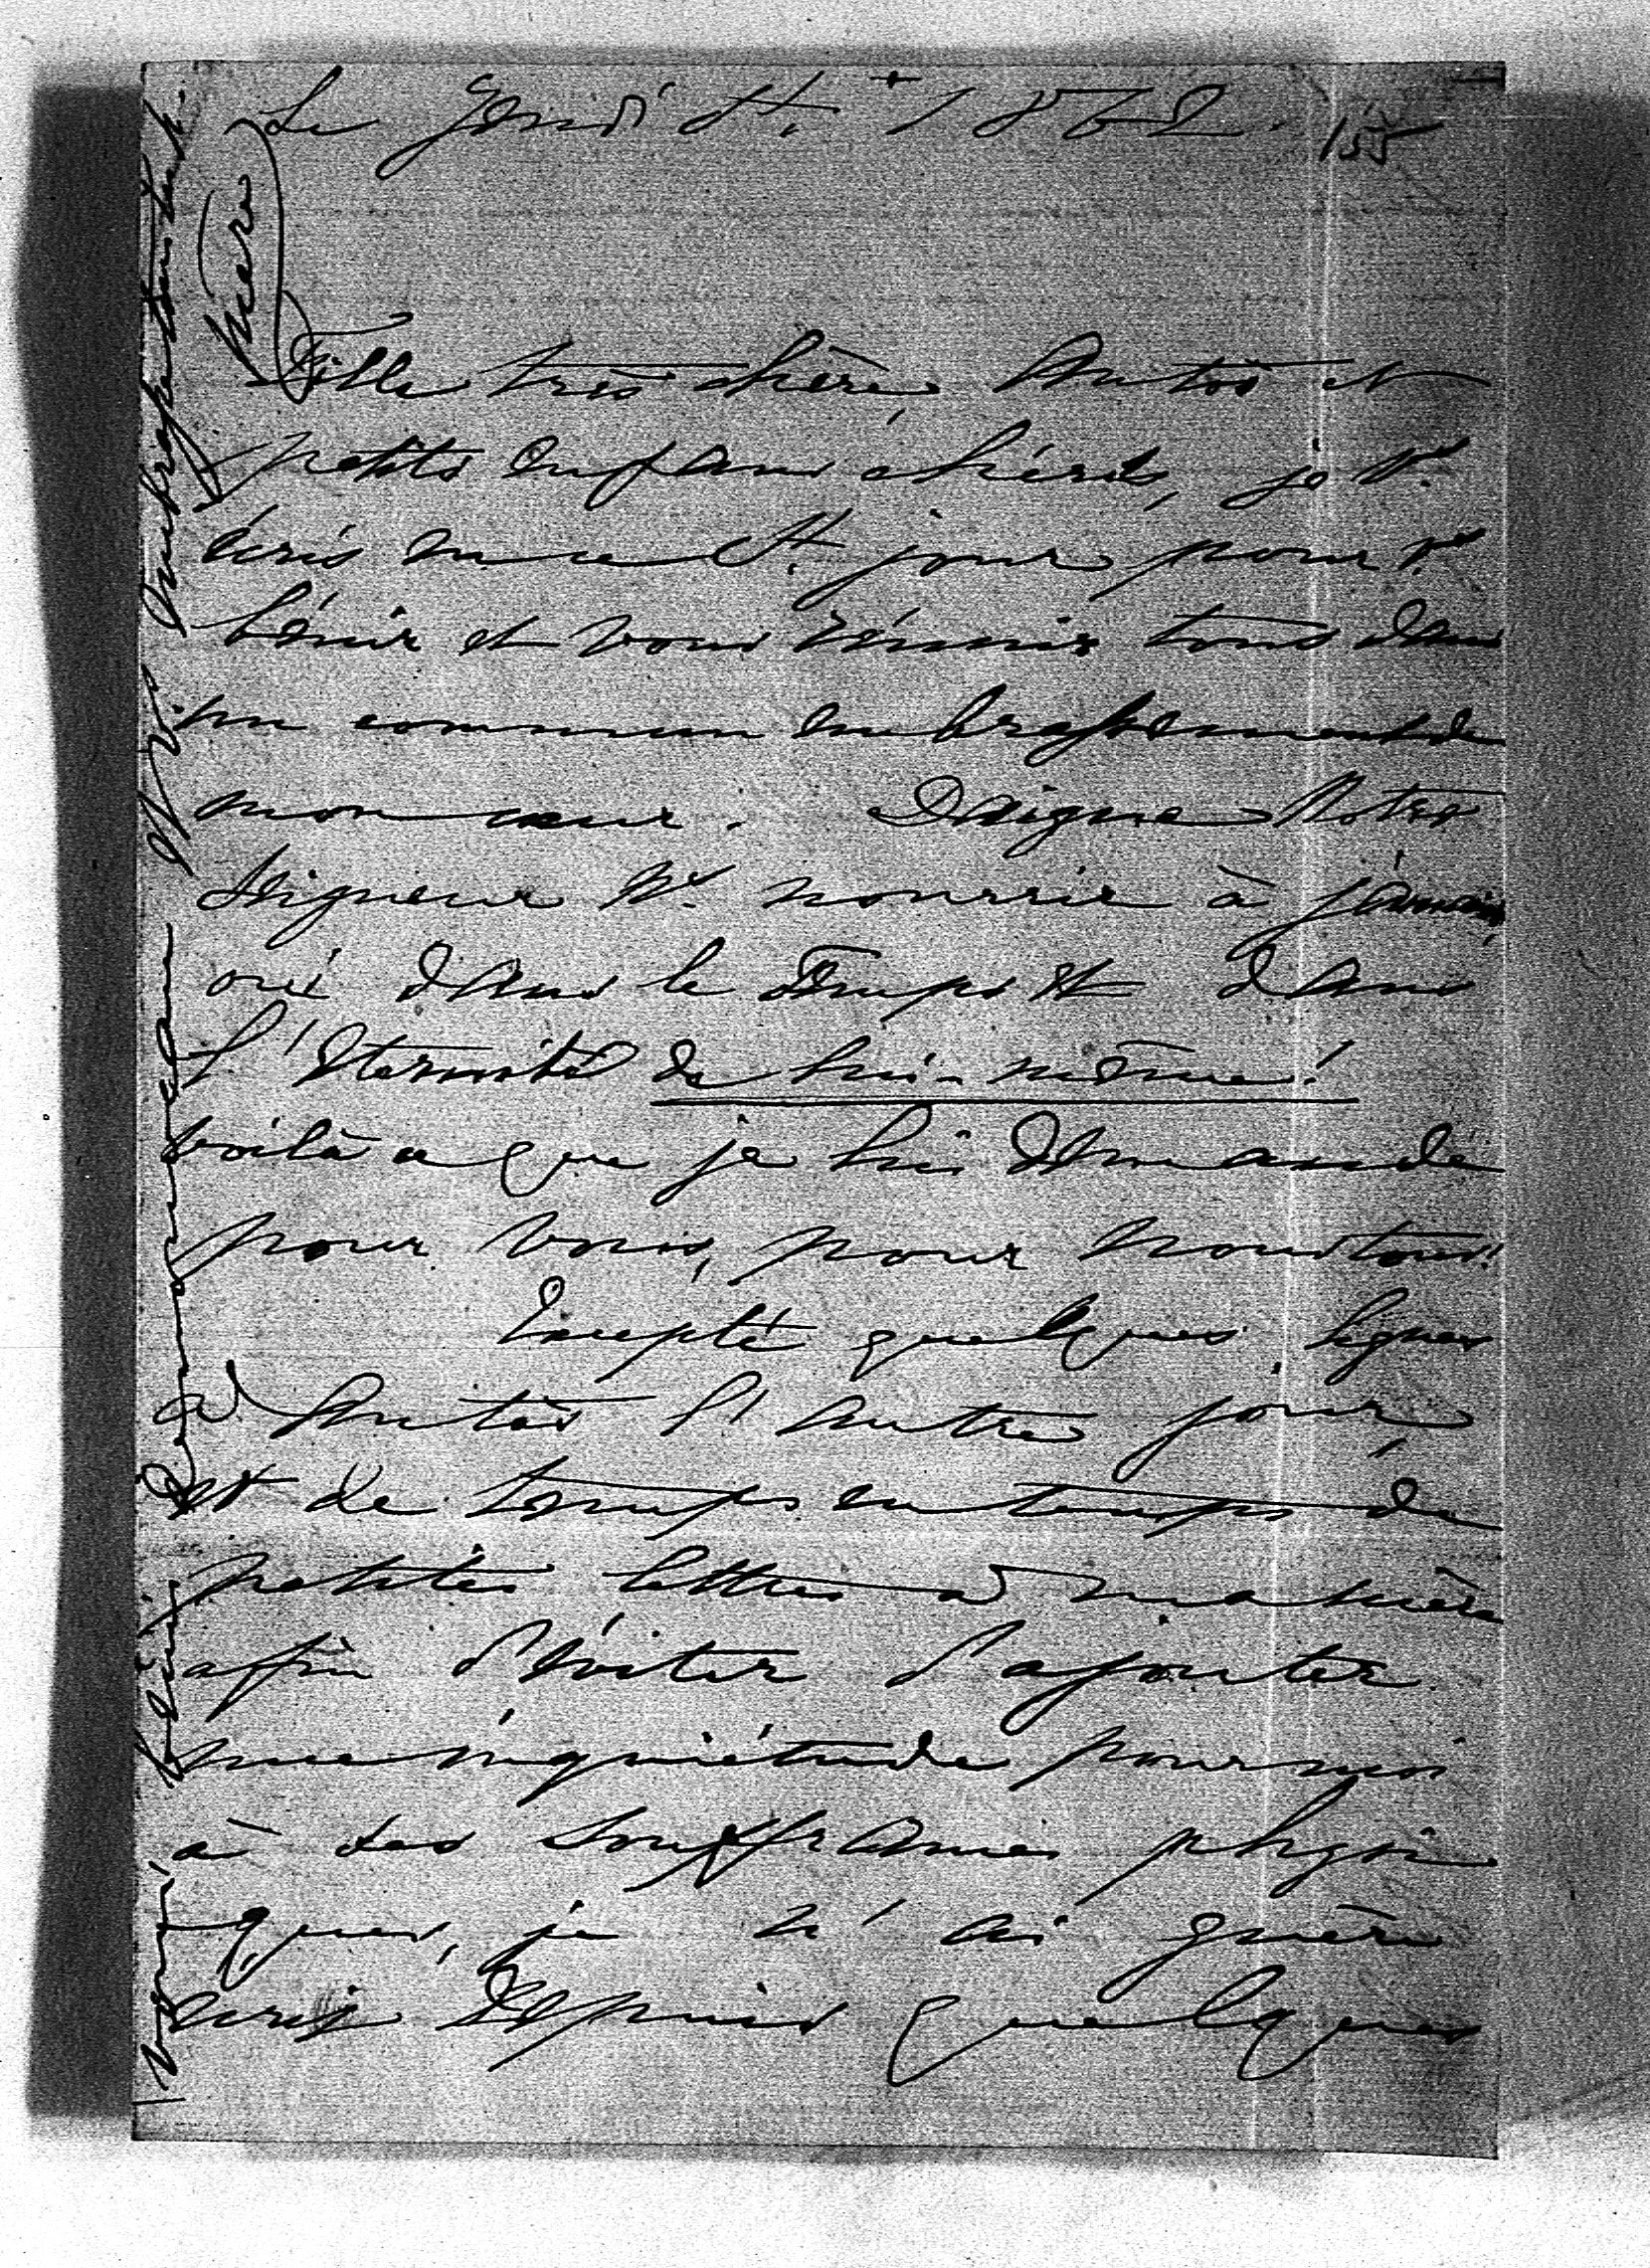 Le Jeudi St. + 1862.
155
Fille très chère, Antos et
petits enfans chéris, je vs.
écris en ce St. jour pour vs.
bénir et vous réunir tous dans
un commun embrassement de
mon cœur. Daigne Notre
Seigneur vs. nourrir à jamais,
oui dans le temps et dans
l'éternité de lui-même!
voilà ce que je lui demande
pour vous, pour nous tous!
Excepté quelques lignes
à Antos l'autre jour,
et de temps en temps de
petites lettres à ma mère
affin d'éviter d'ajouter
une inquiétude pour moi
à ses souffrances physi
ques, je n'ai guère
écris depuis quelques
vous bénis
Mère